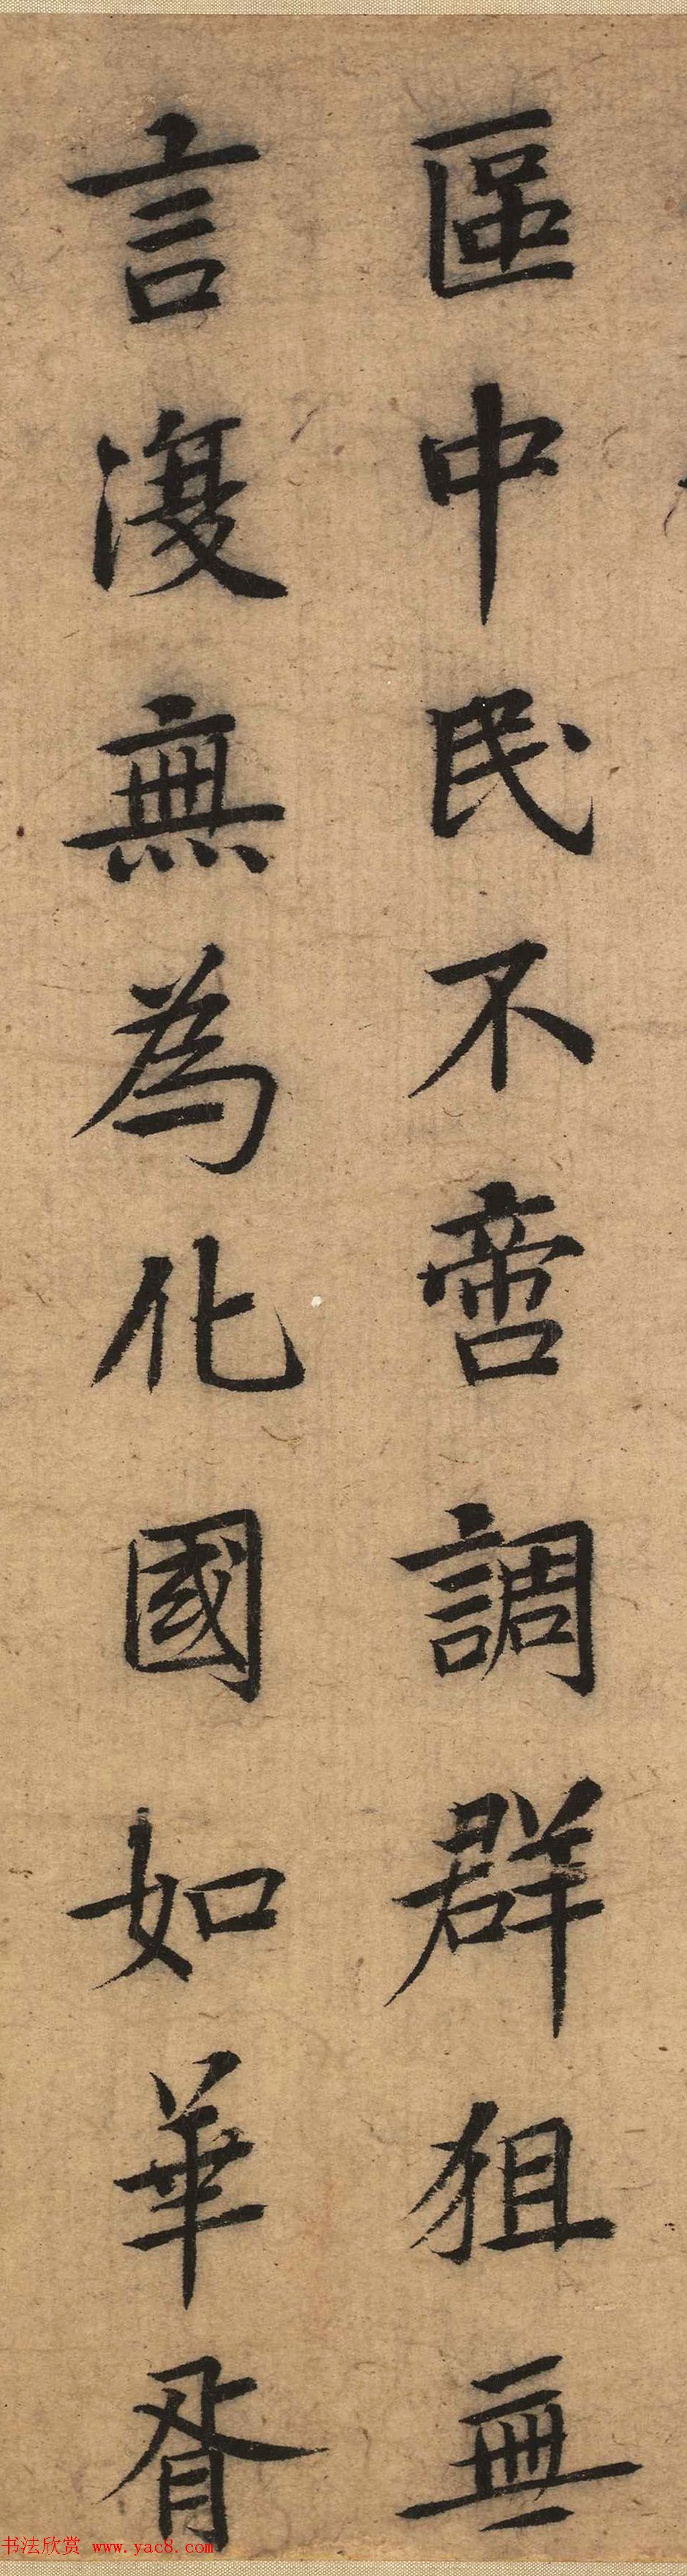 區中民不啻調群狙無
言復無為化國如華胥
书法欣赏 www.yac8.com